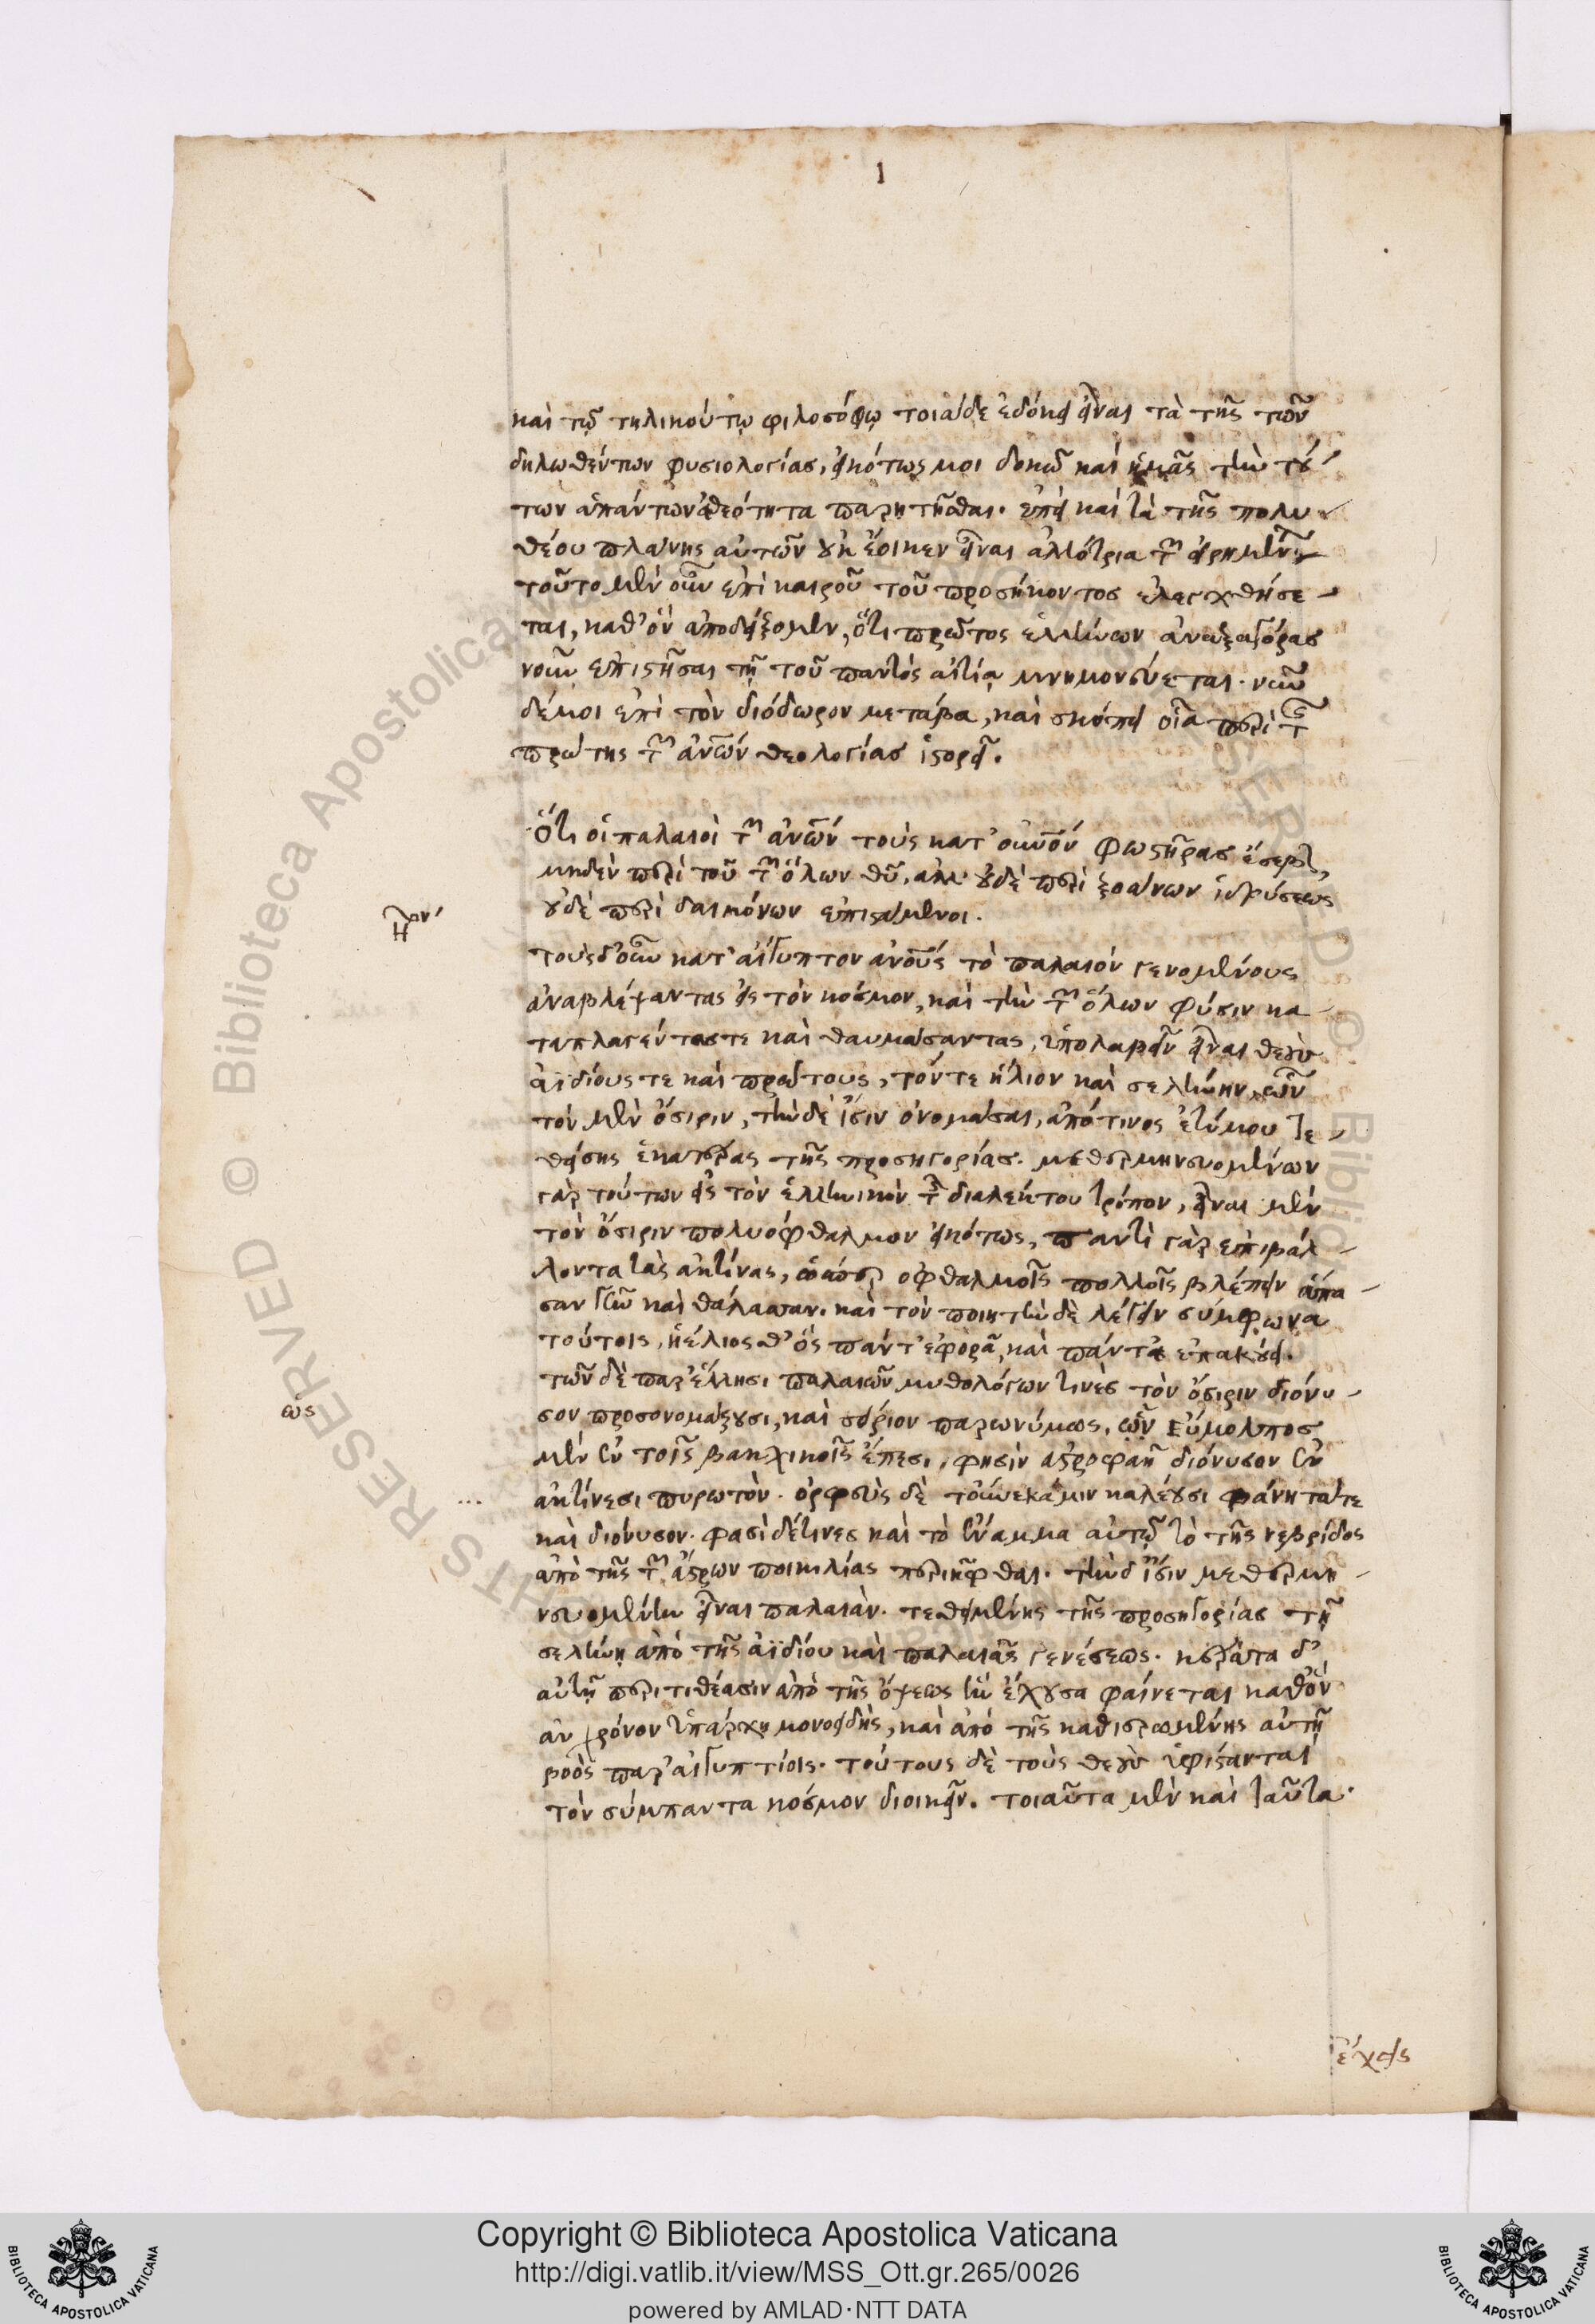 1
καὶ τῷ τηλικούτῳ φιλοσόφῳ τοιάδε ἐδόκει εἶναι τὰ τῆς τῶν
δηλωθέντων φυσιολογίας, εἰκότως μοι δοκῶ καὶ ἡμᾶς τὴν τού
των ἁπάντων ἀθεότητα παρῃτῆσθαι. ἐπεὶ καὶ τὰ τῆς πολυ
θέου πλάνης αὐτῶν οὐκ ἔοικεν εἶναι ἀλλότρια τῶν εἰρημένων
τοῦτο μὲν οὖν ἐπὶ καιροῦ τοῦ προσήκοντος ἐλεγχθήσε
ται, καθ' ὃν ἀποδείξομεν, ὅτι πρῶτος ἑλλήνων ἀναξαγόρας
νοῦν ἐπιστῆσαι τῇ τοῦ παντὸς αἰτίᾳ μνημονεύεται. νῦν
δέ μοι ἐπὶ τὸν διόδωρον μετάβα, καὶ σκόπει οἷα περὶ τῆς
πρώτης τῶν ἀνῶν θεολογίας ἱστορεῖ.
Ὅτι οἱ παλαιοὶ τῶν ἀνῶν τοὺς κατ' οὐνὸν φωστῆρας ἔσεβον,
μηδὲν περὶ τοῦ τῶν ὅλων θῦ, ἀλλ' οὐδὲ περὶ ξοάνων ἱδρύσεως
οὐδὲ περὶ δαιμόνων ἐπιστάμενοι.
τοὺς δ' οὖν κατ' αἴγυπτον ἀνοὺς τὸ παλαιὸν γενομένους
ἀναβλέψαντας εἰς τὸν κόσμον, καὶ τὴν τῶν ὅλων φύσιν κα
ταπλαγέντας τε καὶ θαυμάσαντας, ὑπολαβεῖν εἶναι θεοὺς
ἀϊδίους τε καὶ πρώτους, τόν τε ἥλιον καὶ σελήνην, ὧν
τὸν μὲν ὄσιριν, τὴν δὲ ἶσιν ὀνομάσαι, ἀπό τινος ἐτύμου τε
θείσης ἑκατέρας τῆς προσηγορίας. μεθερμηνευομένων
γὰρ τούτων εἰς τὸν ἑλληνικὸν τῆς διαλέκτου τρόπον, εἶναι μὲν
τὸν ὄσιριν πολυόφθαλμον εἰκότως, παντὶ γὰρ ἐπιβάλ
λοντα τὰς ἀκτίνας, ὥσπερ ὀφθαλμοῖς πολλοῖς βλέπειν ἅπα
σαν γῆν καὶ θάλασσαν. καὶ τὸν ποιητὴν δὲ λέγειν σύμφωνα
τούτοις, ἠέλιος θ' ὃς πάντ' ἐφορᾷ, καὶ πάντα ἐπακούει.
τῶν δὲ παρ' ἕλλησι παλαιῶν μυθολόγων τινὲς τὸν ὄσιριν διόνυ
ὡς
σον προσονομάζουσι, καὶ σείριον παρωνύμως. ὧν Εὔμολπος
μὲν ἐν τοῖς βακχικοῖς ἔπεσι, φησὶν ἀστροφαῆ διόνυσον ἐν
ἀκτίνεσι πυρωτόν. ὀρφεὺς δὲ τοὔνεκά μιν καλέουσι φάνητά τε
καὶ διόνυσον. φασὶ δέ τινες καὶ τὸ ἔναμμα αὐτῷ τὸ τῆς νεβρίδος
ἀπὸ τῆς τῶν ἄστρων ποικιλίας περιῆφθαι. τὴν δ' ἶσιν μεθερμη
νευομένην εἶναι παλαιάν. τεθειμένης τῆς προσηγορίας τῇ
σελήνῃ ἀπὸ τῆς ἀϊδίου καὶ παλαιᾶς γενέσεως. κέρατα δ'
αὐτῇ περιτιθέασιν ἀπὸ τῆς ὄψεως ἣν ἔχουσα φαίνεται καθ' ὃν
ἂν χρόνον ὑπάρχῃ μονοειδὴς, καὶ ἀπὸ τῆς καθιερωμένης αὐτῇ
βοὸς παρ' αἰγυπτίοις. τούτους δὲ τοὺς θεοὺς ὑφίστανται
τὸν σύμπαντα κόσμον διοικεῖν. τοιαῦτα μὲν καὶ ταῦτα.
ἔχεις
Copyright © Biblioteca Apostolica Vaticana
http://digi.vatlib.it/view/MSS_Ott.gr.265/0026
powered by AMLAD·NTT DATA